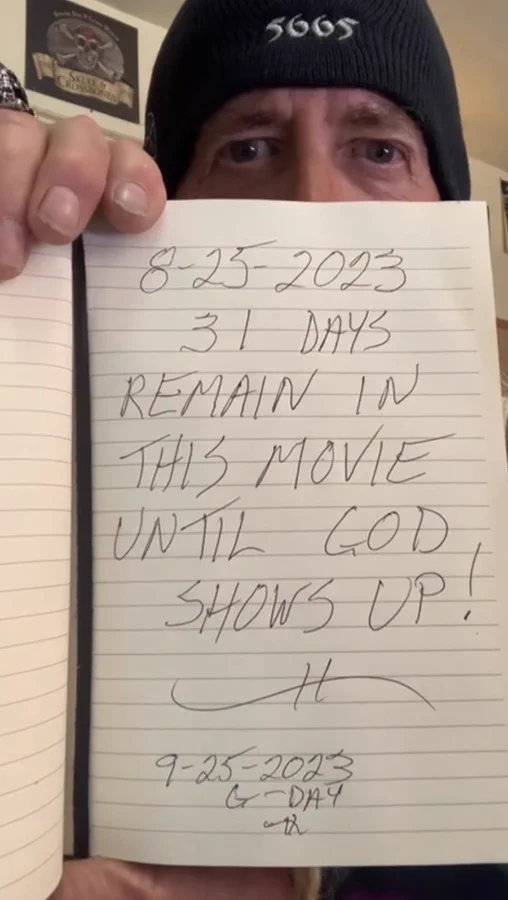 5665
SKULL &
CROSSBONES
8-25-2023
31 DAYS
REMAIN IN
THIS MOVIE
UNTIL GOD
SHOWS UP!
H
9-25-2023
G-DAY